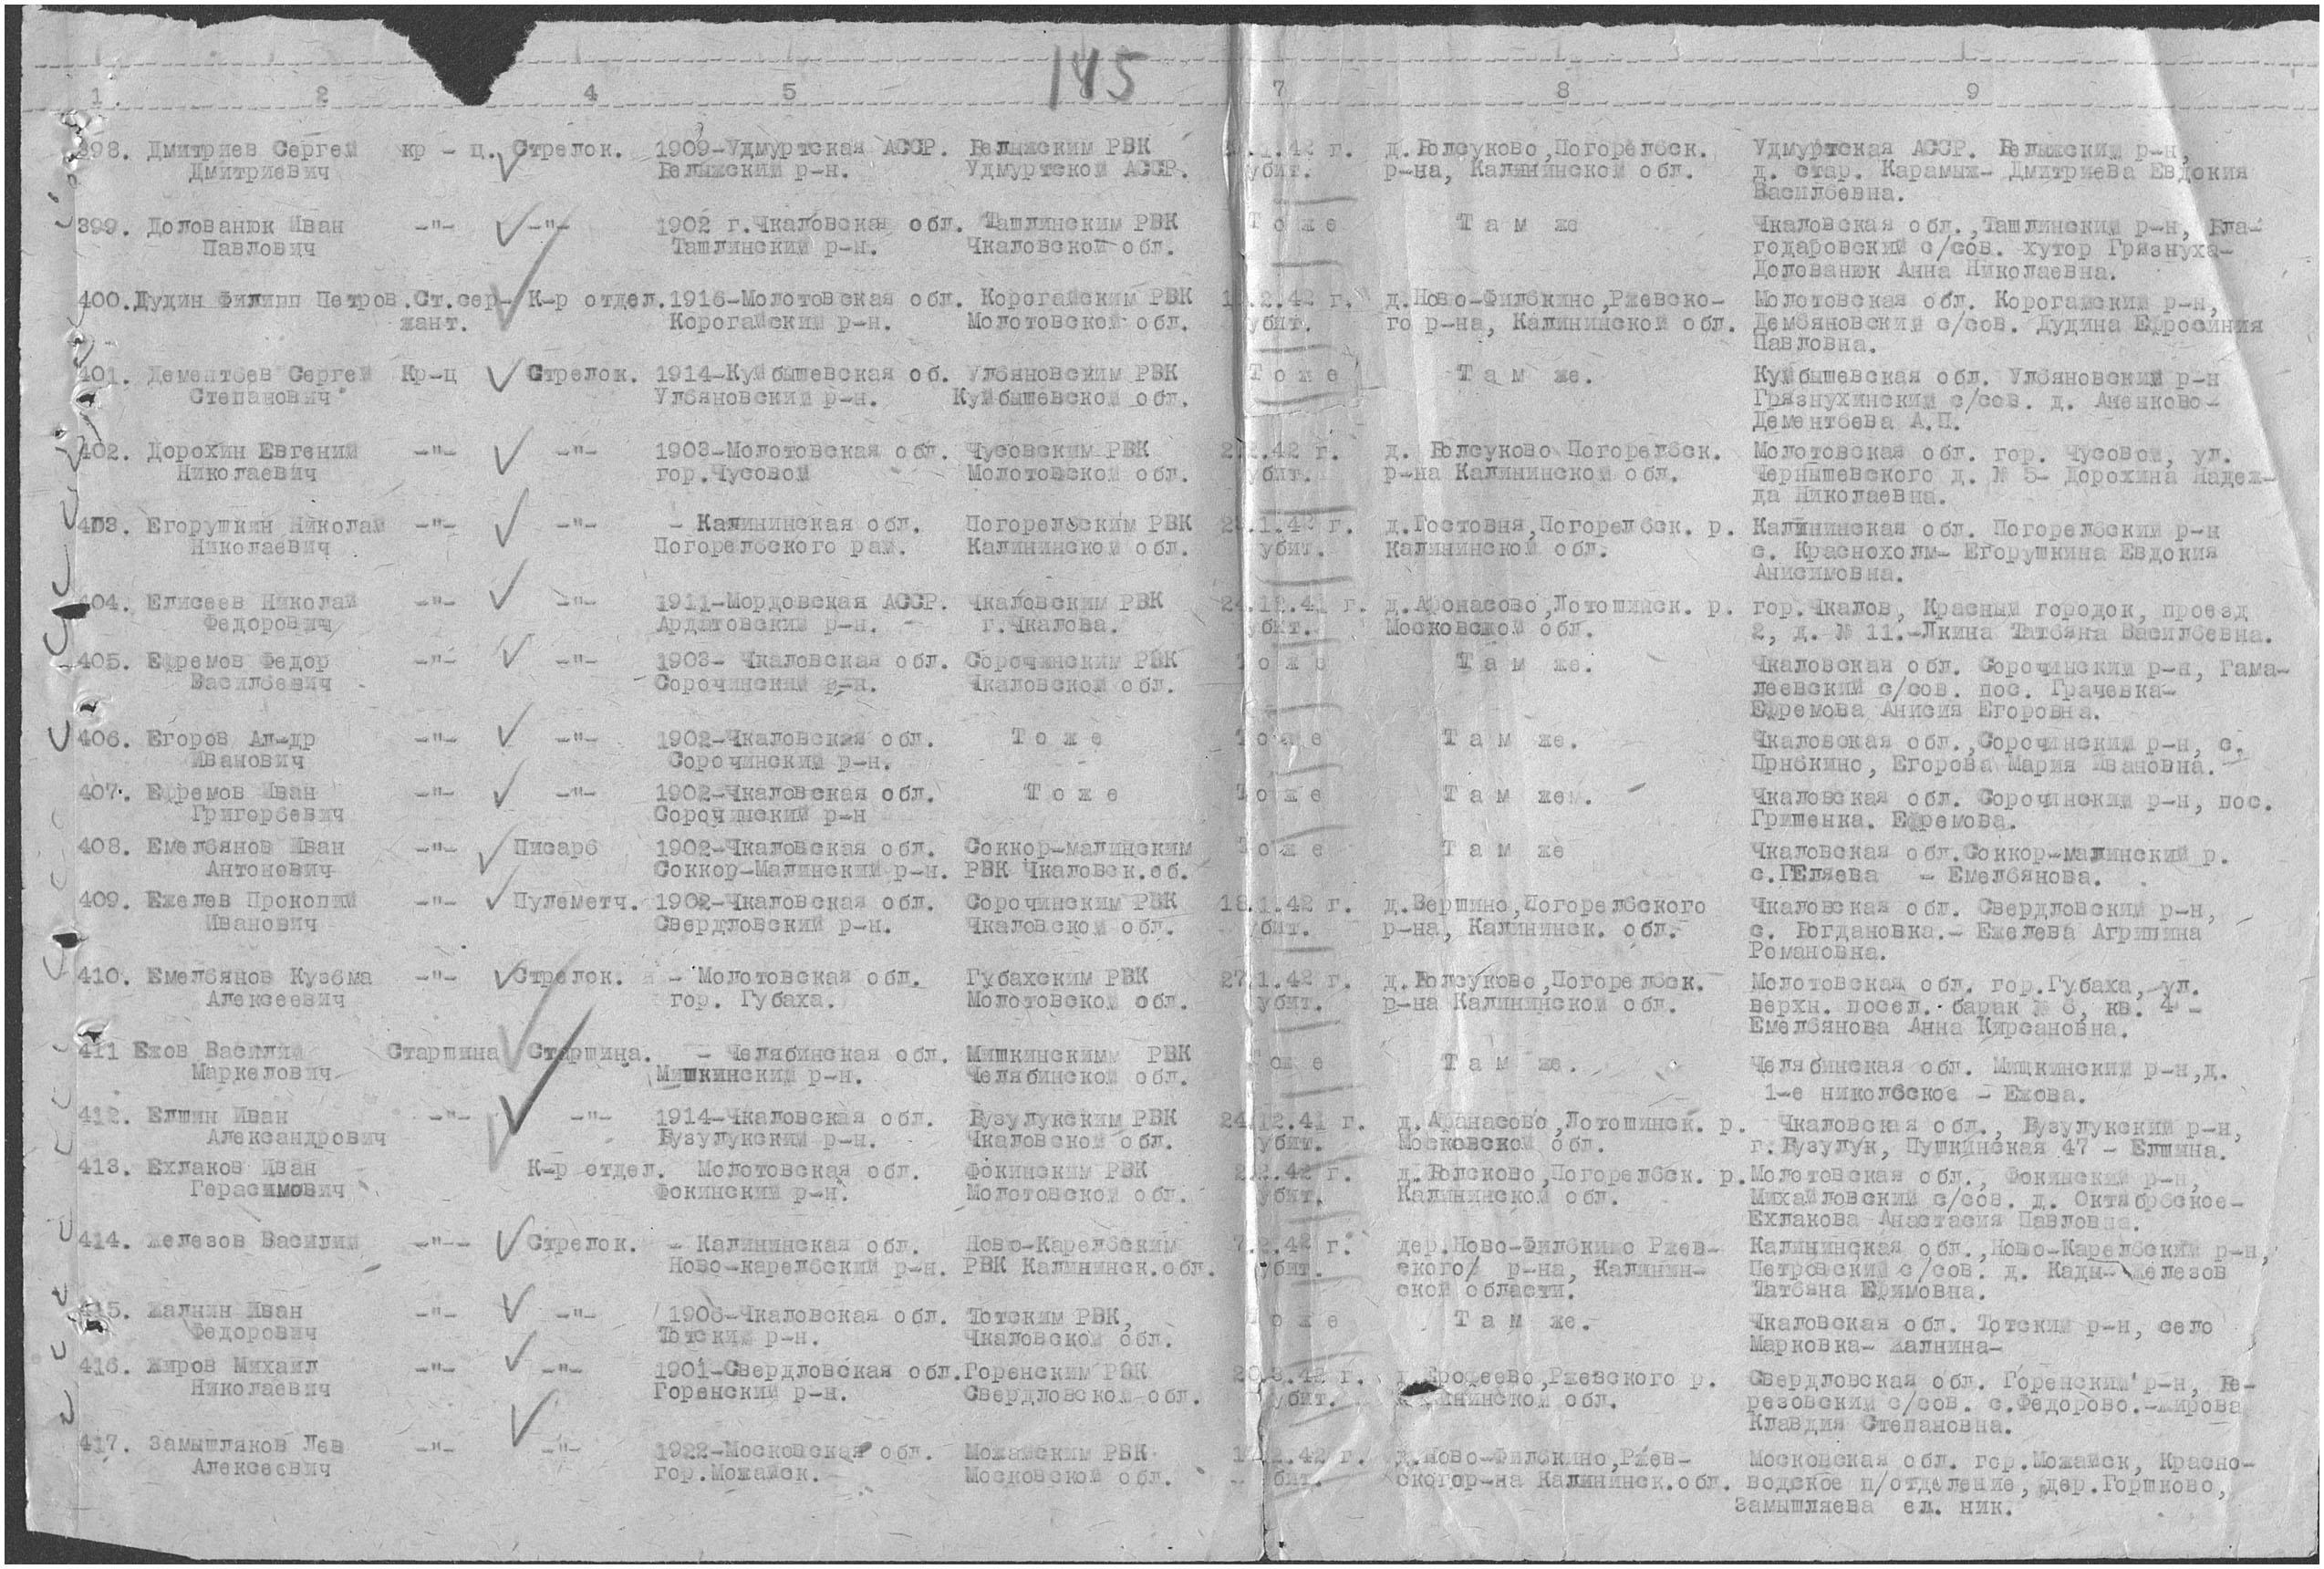 145
1. 2 4 5 7 8 9
398. Дмитриев Сергей кр - ц. Стрелок. 1909-Удмуртская АССР. Велыжским РВК .1.42 г. д.Болсуково,Погорельск. Удмуртская АССР. Велыжский р-н,
Дмитриевич Велыжский р-н. Удмуртской АССР. убит. р-на, Калининской обл. д. стар. Карамыж- Дмитриева Евдокия
Васильевна.
399. Долованюк Иван -"- -"- 1902 г.Чкаловская обл. Ташлинским РВК Тоже Там же Чкаловская обл.,Ташлинский р-н, Бла-
Павлович Ташлинский р-н. Чкаловской обл. годаровский с/сов. хутор Грязнуха-
Долованюк Анна Николаевна.
400.Дудин Филипп Петров.Ст.сер- К-р отдел.1916-Молотовская обл. Корогайским РВК .2.42 г. д.Ново-Филькино,Ржевско- Молотовская обл. Корогайский р-н,
жант. Корогайский р-н. Молотовской обл. убит. го р-на, Калининской обл. Демьяновский с/сов. Дудина Ефросиния
Павловна.
401. Дементьев Сергей Кр-ц Стрелок. 1914-Куйбышевская об. Ульяновским РВК Тоже Там же. Куйбышевская обл. Ульяновский р-н
Степанович Ульяновский р-н. Куйбышевской обл. Грязнухинский с/сов. д. Аненково-
Дементьева А.П.
402. Дорохин Евгений -"- -"- 1903-Молотовская обл. Чусовским РВК 2.2.42 г. д. Болсуково Погорельск. Молотовская обл. гор. Чусовой, ул.
Николаевич гор.Чусовой Молотовской обл. убит. р-на Калининской обл. Чернышевского д. № 5- Дорохина Надеж-
да Николаевна.
403. Егорушкин Николай -"- -"- - Калининская обл. Погорельским РВК .1.42 г. д.Гостовня,Погорельск. р. Калининская обл. Погорельский р-н
Николаевич Погорельского рай. Калининской обл. убит. Калининской обл. с. Краснохолм- Егорушкина Евдокия
Анисимовна.
404. Елисеев Николай -"- -"- 1911-Мордовская АССР. Чкаловским РВК 24.12.41 г. д.Афонасово,Лотошинск. р. гор.Чкалов, Красный городок, проезд
Федорович Ардатовский р-н. г.Чкалова. убит. Московской обл. 2, д. № 11.-Лкина Татьяна Васильевна.
405. Ефремов Федор -"- -"- 1903- Чкаловская обл. Сорочинским РВК Тоже Там же. Чкаловская обл. Сорочинский р-н, Гама-
Васильевич Сорочинский р-н. Чкаловской обл. леевский с/сов. пос. Грачевка-
Ефремова Анисия Егоровна.
406. Егоров Ал-др -"- -"- 1902-Чкаловская обл. Тоже Тоже Там же. Чкаловская обл.,Сорочинский р-н, с.
Иванович Сорочинский р-н. Прнькино, Егорова Мария Ивановна.
407. Ефремов Иван -"- -"- 1902-Чкаловская обл. Тоже Тоже Там жем. Чкаловская обл. Сорочинский р-н, пос.
Григорьевич Сорочинский р-н Гришенка. Ефремова.
408. Емельянов Иван -"- Писарь 1902-Чкаловская обл. Соккор-малинским Тоже Там же Чкаловская обл.Соккор-малинский р.
Антонович Соккор-Малинский р-н. РВК Чкаловск.об. с.ГЕляева - Емельянова.
409. Ежелев Прокопий -"- Пулеметч. 1902-Чкаловская обл. Сорочинским РВК 18.1.42 г. д.Вершино,Погорельского Чкаловская обл. Свердловский р-н,
Иванович Свердловский р-н. Чкаловской обл. убит. р-на, Калининск. обл. с. Богдановка.- Ежелева Агрипина
Романовна.
410. Емельянов Кузьма -"- Стрелок. - Молотовская обл. Губахским РВК 27.1.42 г. д.Болсуково,Погорельск. Молотовская обл. гор.Губаха, ул.
Алексеевич гор. Губаха. Молотовской обл. убит. р-на Калининской обл. верхн. посел. барак № 6, кв. 4 -
Емельянова Анна Кирсановна.
411 Ехов Василий Старшина Старшина. - Челябинская обл. Мишкинскимм РВК Тоже Там же. Челябинская обл. Мишкинский р-н,д.
Маркелович Мишкинский р-н. Челябинской обл. 1-е никольское - Ехова.
412. Елшин Иван -"- -"- 1914-Чкаловская обл. Бузулукским РВК 24.12.41 г. д.Афанасово,Лотошинск. р. Чкаловская обл., Бузулукский р-н,
Александрович Бузулукский р-н. Чкаловской обл. убит. Московской обл. г.Бузулук, Пушкинская 47 - Елшина.
413. Ехлаков Иван К-р отдел. Молотовская обл. Фокинским РВК 2.2.42 г. д.Болсково,Погорельск. р. Молотовская обл., Фокинский р-н,
Герасимович Фокинский р-н. Молотовской обл. убит. Калининской обл. Михайловский с/сов. д. Октябрьское-
Ехлакова Анастасия Павловна.
414. Железов Василий -"-- Стрелок. - Калининская обл. Ново-Карельским 7.2.42 г. дер.Ново-Филькино Ржев- Калининская обл.,Ново-Карельский р-н,
Ново-карельский р-н. РВК Калининск.обл. убит. ского/ р-на, Калинин- Петровский с/сов. д. Кады- Железов
ской области. Татьяна Ефимовна.
415. Жалнин Иван -"- -"- 1906-Чкаловская обл. Тотским РВК, Тоже Там же. Чкаловская обл. Тотский р-н, село
Федорович Тотский р-н. Чкаловской обл. Марковка- Жалнина-
416. Жиров Михаил -"- -"- 1901-Свердловская обл.Горенским РВК 20.3.42 г. Ржевского р. Свердловская обл. Горенский р-н, Бе-
Николаевич Горенский р-н. Свердловской обл. убит. обл. резовский с/сов. с.Федорово.-Жирова
Клавдия Степановна.
417. Замышляков Лев -"- -"- 1922-Московская обл. Можайским РВК .2.42 г. д.Ново-Филькино,Ржев- Московская обл. гор.Можайск, Красно-
Алексеевич гор.Можайск. Московской обл. убит. скогор-на Калининск.обл. водское п/отделение, дер.Горшково,
Замышляева ел. ник.